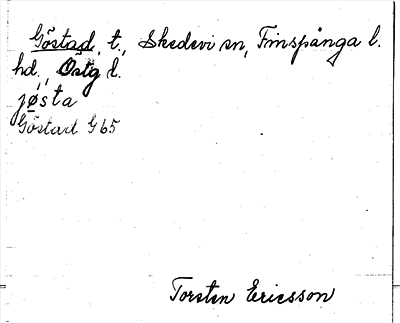 Göstad, t., Skedevi sn, Finspånga l.
hd., Östg l.
jø̀sta
Göstad G 65
Torsten Ericsson